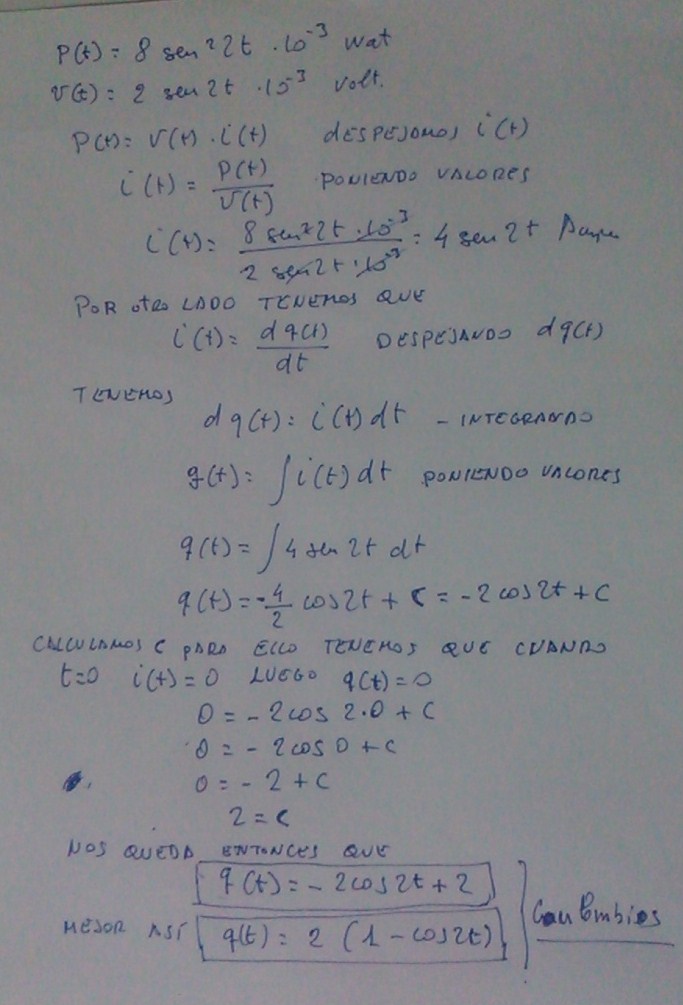 P(t) = 8 sen² 2t · 10⁻³ wat
v(t) = 2 sen 2t · 10⁻³ volt.
P(t) = v(t) · i(t) DESPEJAMOS i(t)
i(t) = P(t) / v(t) PONIENDO VALORES
i(t) = 8 sen² 2t · 10⁻³ / 2 sen 2t · 10⁻³ = 4 sen 2t
POR OTRO LADO TENEMOS QUE
i(t) = dq(t) / dt DESPEJANDO dq(t)
TENEMOS
dq(t) = i(t) dt - INTEGRANDO
q(t) = ∫ i(t) dt PONIENDO VALORES
q(t) = ∫ 4 sen 2t dt
q(t) = -4/2 cos 2t + C = -2 cos 2t + C
CALCULAMOS C PARA ELLO TENEMOS QUE CUANDO
t=0 i(t) = 0 LUEGO q(t) = 0
0 = - 2 cos 2·0 + C
0 = - 2 cos 0 + C
0 = - 2 + C
2 = C
NOS QUEDA ENTONCES QUE
q(t) = - 2 cos 2t + 2
MEJOR ASÍ q(t) = 2 (1 - cos 2t)
Coulombios